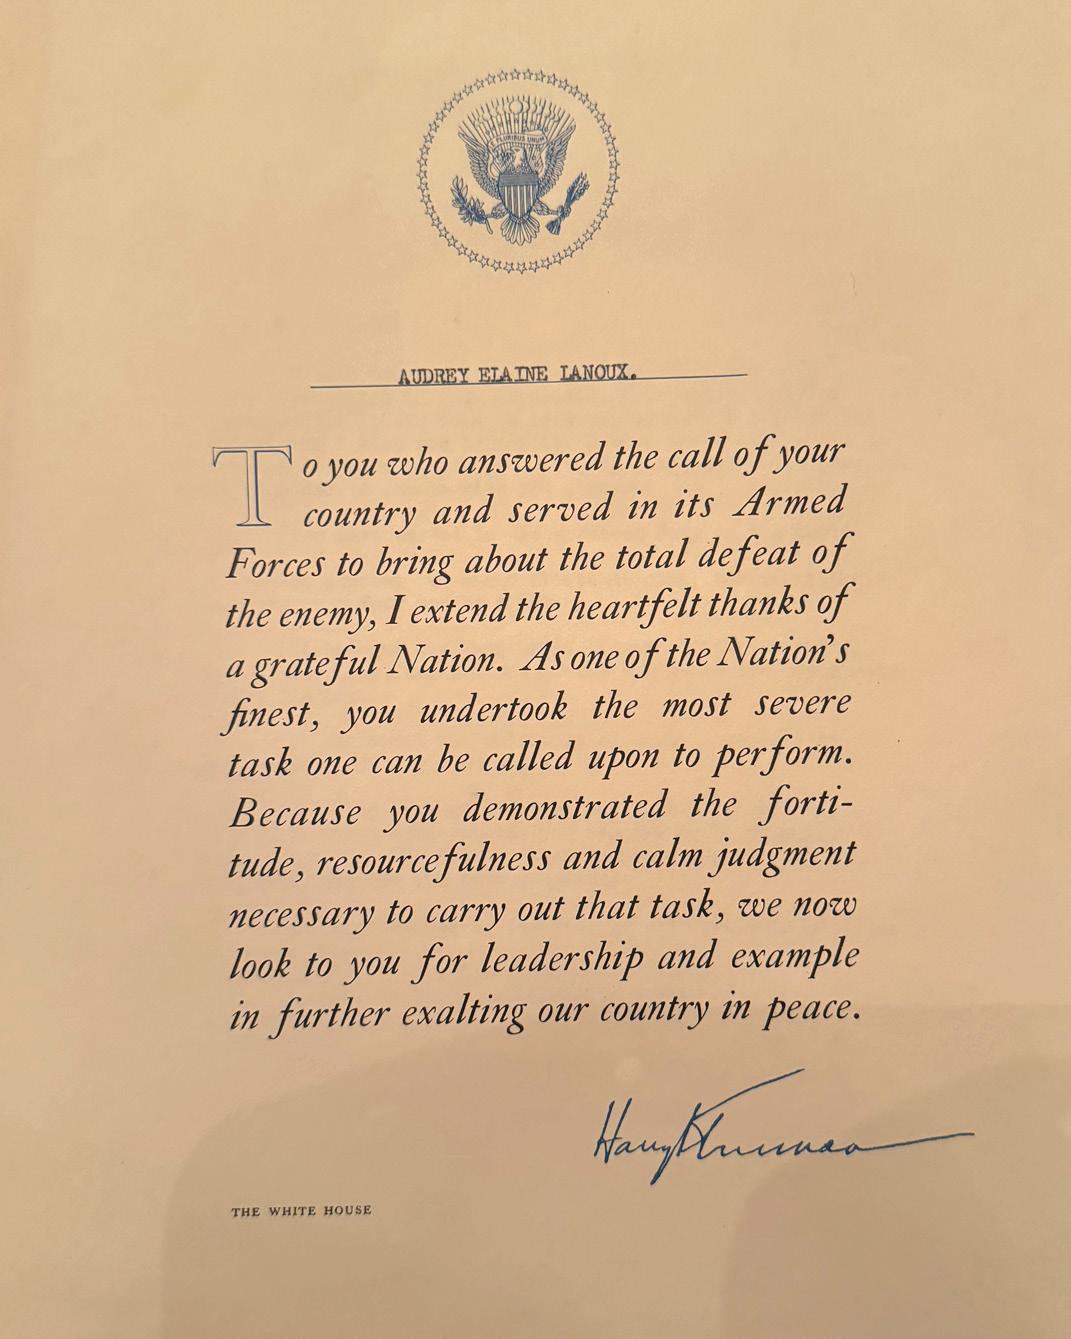 E PLURIBUS UNUM
AUDREY ELAINE LANOUX.
To you who answered the call of your
country and served in its Armed
Forces to bring about the total defeat of
the enemy, I extend the heartfelt thanks of
a grateful Nation. As one of the Nation's
finest, you undertook the most severe
task one can be called upon to perform.
Because you demonstrated the forti-
tude, resourcefulness and calm judgment
necessary to carry out that task, we now
look to you for leadership and example
in further exalting our country in peace.
Harry S Truman
THE WHITE HOUSE